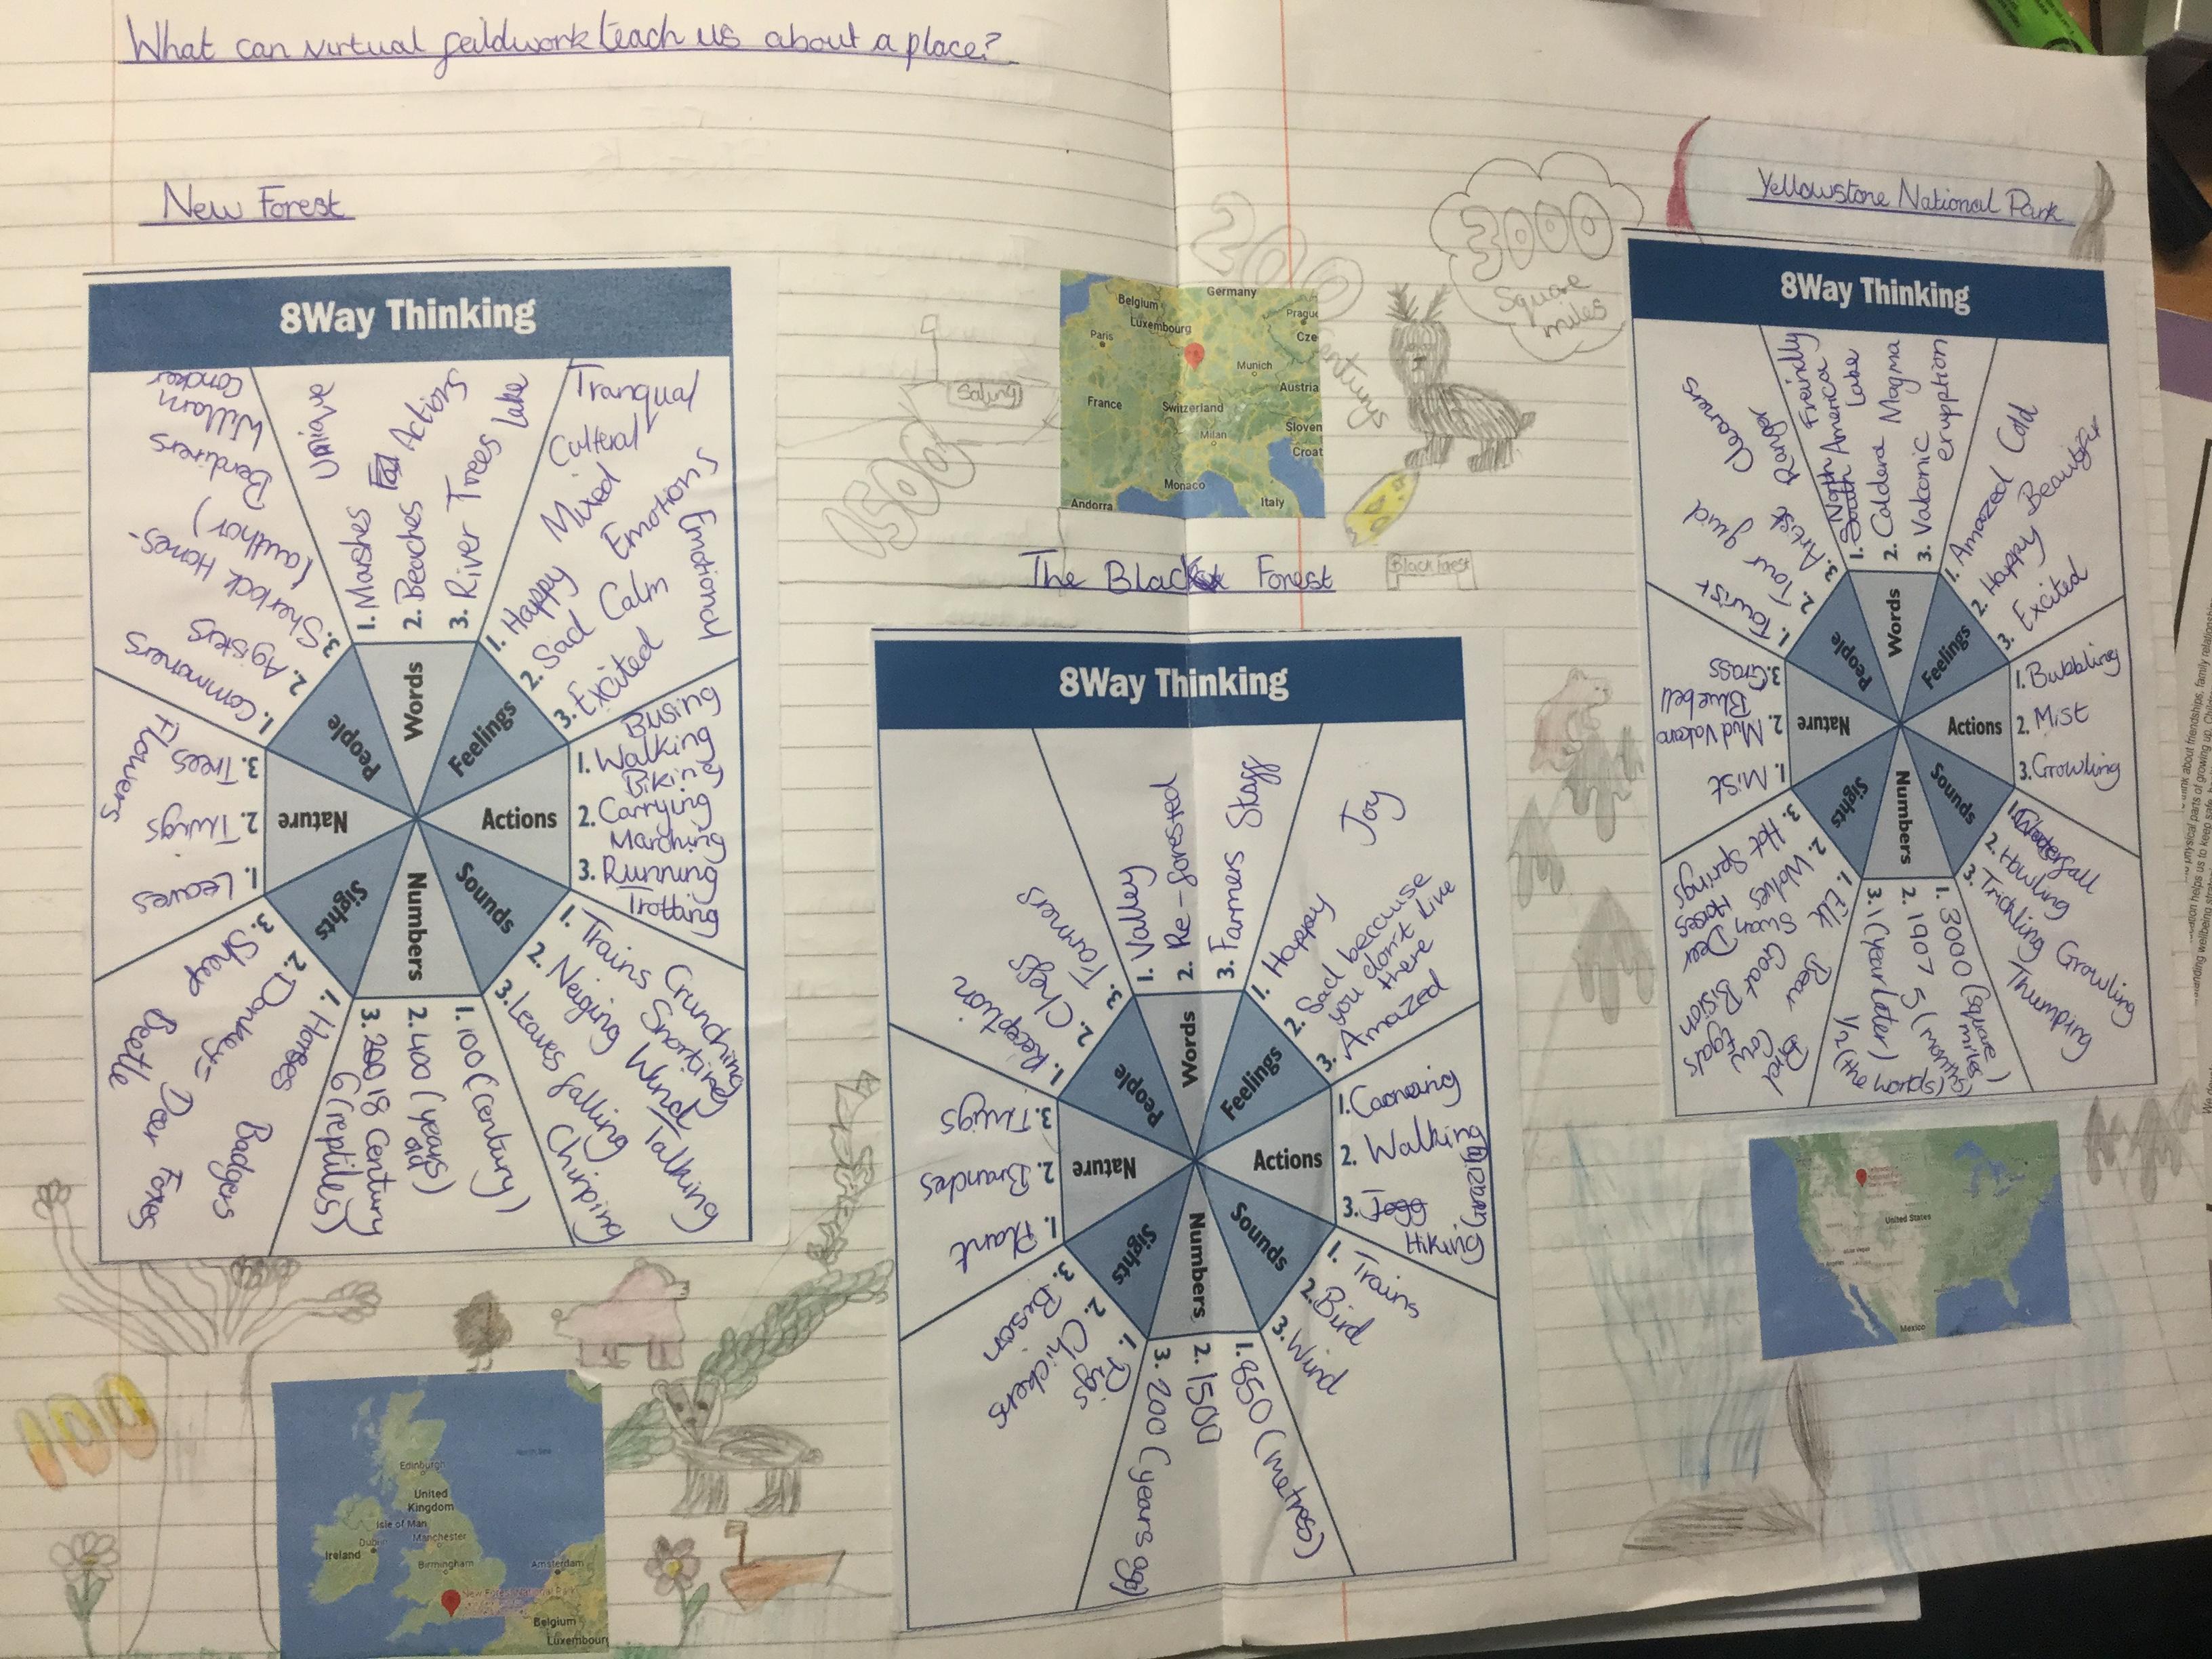 What can virtual feildwork teach us about a place?
New Forest
8Way Thinking
Words
1. Marshes
Unique
2. Beaches
Actions
3. River Trees Lake
Feelings
1. Happy Mixed
Emotions
2. Sad Calm
3. Excited
Tranqual
Cultural
Emotional
Actions
Busing
1. Walking
Biking
2. Carrying
Marching
3. Running
Trotting
Sounds
1. Trains
Crunching
2. Neiging
Snorting
Wind
Talking
3. Leaves falling
Chirping
Numbers
1. 100 (century)
2. 400 (years old)
3. 200 18 Century
6 (reptiles)
Sights
1. Horses
2. Donkeys
3. Sheep
Badgers
Deer Foxes
Beetle
Nature
1. Leaves
2. Twigs
3. Trees
Flowers
People
1. Commoners
2. Agisters
3. Sherlock Homes-
(author)
William
Concker
Edinburgh
North Sea
United
Kingdom
Isle of Man
Dublin
Manchester
Ireland
Birmingham
Amsterdam
New Forest National Park
Belgium
Luxembourg
Saling
1500
200
centurys
Belgium
Germany
Luxembourg
Paris
Prague
Cze
Munich
France
Austria
Switzerland
Sloven
Milan
Croat
Monaco
Andorra
Italy
The Black Forest
Black forest
8Way Thinking
Words
1. Valley
2. Re-forested
3. Farmers Staff
Feelings
Joy
1. Happy
2. Sad because
you don't live
there
3. Amazed
Actions
1. Canoeing
2. Walking
3. Jogg
Hiking
Sounds
1. Trains
2. Bird
3. Wind
Numbers
1. 950 (metres)
2. 1500
3. 200 (years ago)
Sights
1. Pigs
2. Chickens
3. Bison
Nature
1. Plant
2. Branches
3. Twigs
People
1. Reception
2. Chefs
3. Farmers
3000
Square
miles
Yellowstone National Park
8Way Thinking
Words
1. South North America
Freindly
2. Caldera Magma
Lake
3. Valconic
eruption
Feelings
1. Amazed Cold
2. Happy Beautiful
3. Excited
Actions
1. Bubbling
2. Mist
3. Growling
Sounds
1. Waterfall
2. Howling
3. Trickling Growling
Thumping
Numbers
1. 3000 (square miles)
2. 1907
3. 1 (year later)
1/2 (the worlds)
Sights
1. Elk
Bear
Bird
2. Wolves
Swan
Goat
Cow
3. Hot Springs
Horses
Deer
Bison
Egals
Nature
1. Mist
2. Mud Valcano
Bluebell
3. Grass
People
1. Tourist
2. Tour guid
3. Artist
Ranger
Cleaners
United States
Mexico